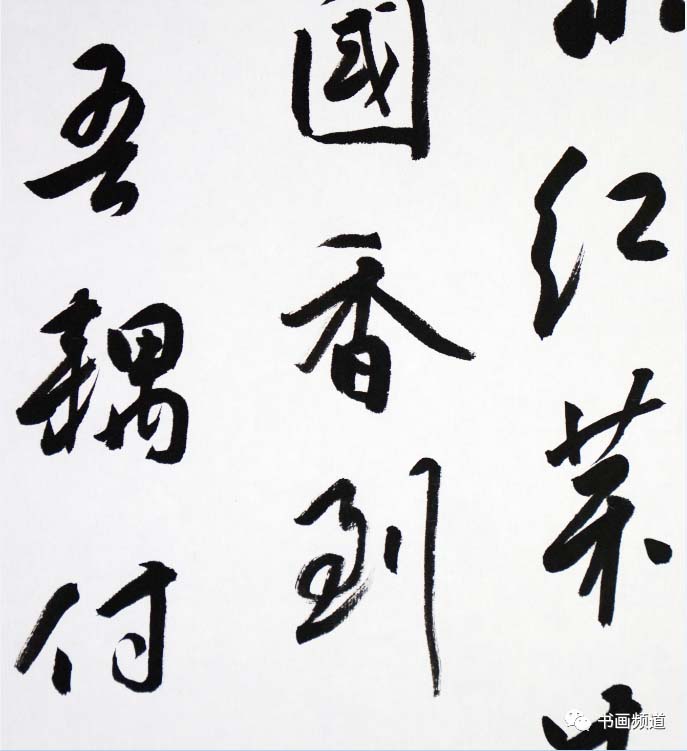 红葉
國香到
吾耦付
书画频道